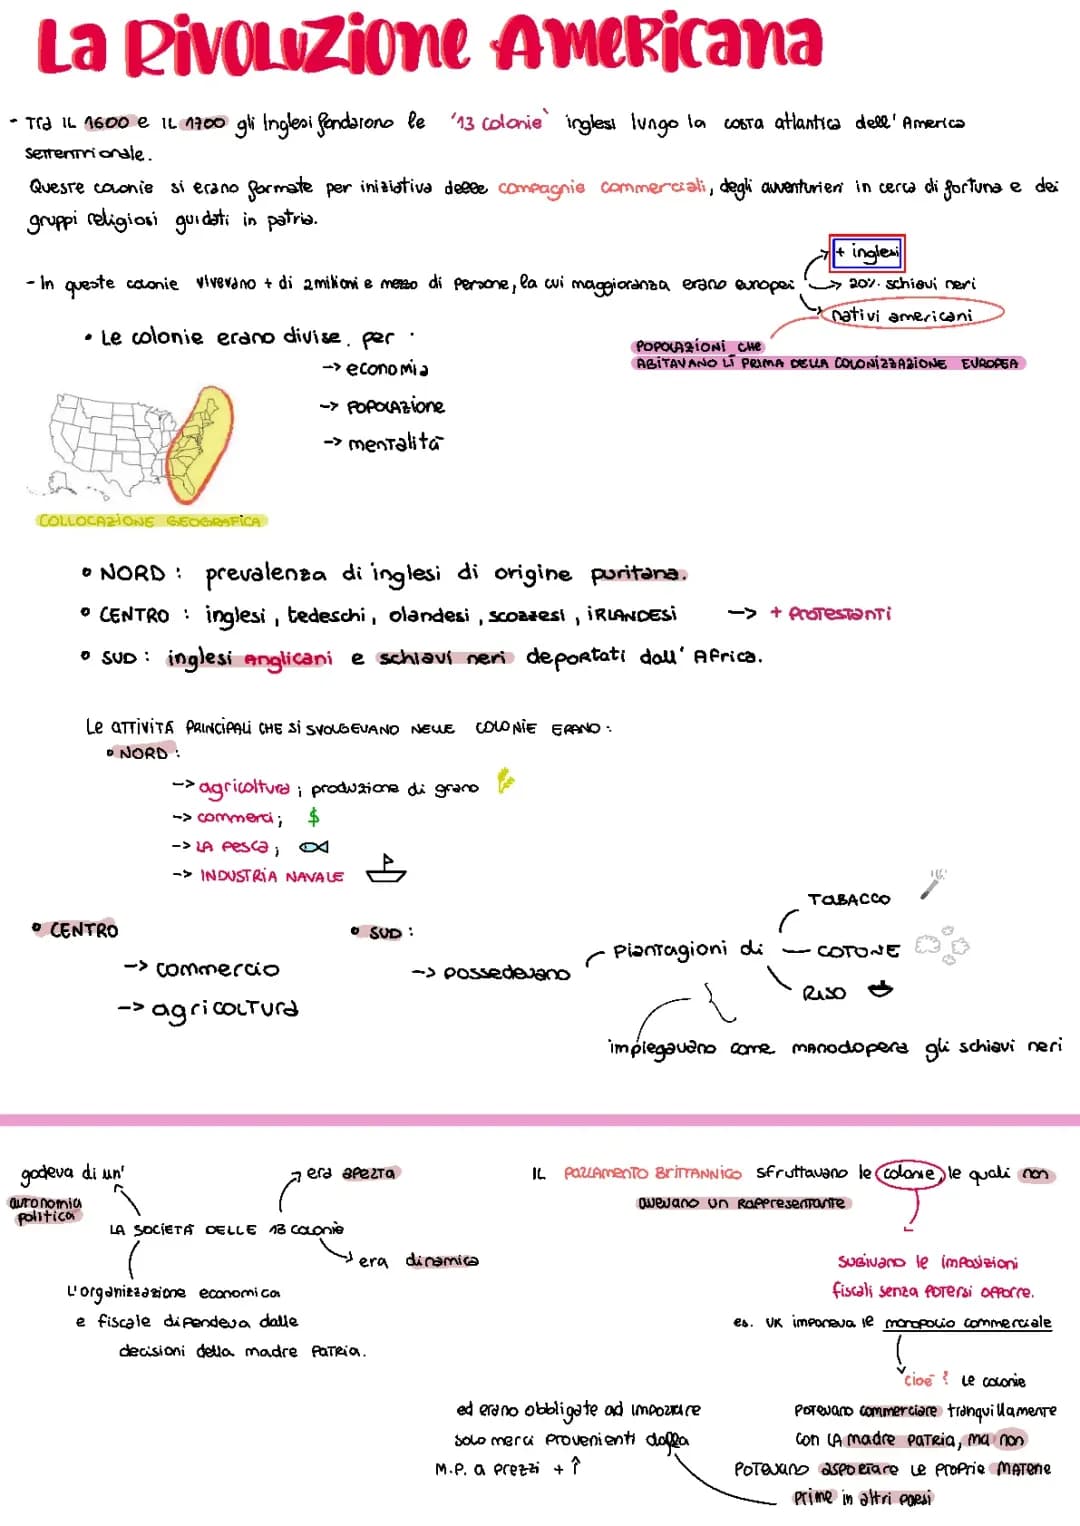 La Rivoluzione Americana
- Tra IL 1600 e IL 1700 gli Inglesi fondarono le '13 colonie' inglesi lungo la costa atlantica dell'America
settentrionale.
Queste colonie si erano formate per iniziativa delle compagnie commerciali, degli avventurieri in cerca di fortuna e dei
gruppi religiosi guidati in patria.
+ inglesi
- In queste colonie vivevano + di 2 milioni e mezzo di persone, la cui maggioranza erano europei -> 20% schiavi neri
nativi americani
POPOLAZIONI CHE
ABITAVANO LÌ PRIMA DELLA COLONIZZAZIONE EUROPEA
• Le colonie erano divise per :
-> economia
-> POPOLAZIONE
-> mentalità
COLLOCAZIONE GEOGRAFICA
• NORD : prevalenza di inglesi di origine puritana.
• CENTRO : inglesi, tedeschi, olandesi, scozzesi, IRLANDESI -> + PROTESTANTI
• SUD : inglesi Anglicani e schiavi neri deportati dall'Africa.
Le ATTIVITÀ PRINCIPALI CHE SI SVOLGEVANO NELLE COLONIE ERANO :
• NORD :
-> agricoltura ; produzione di grano
-> commerci ; $
-> LA PESCA ;
-> INDUSTRIA NAVALE
• CENTRO
-> commercio
-> agricoltura
• SUD :
-> possedevano
Piantagioni di
TABACCO
COTONE
RISO
impiegavano come manodopera gli schiavi neri
godeva di un'
autonomia
politica
era aperta
LA SOCIETÀ DELLE 13 COLONIE
era dinamica
L'organizzazione economica
e fiscale dipendeva dalle
decisioni della madre PATRIA.
IL PARLAMENTO BRITANNICO sfruttavano le colonie, le quali non
avevano un Rappresentante
SUBIVANO le imposizioni
fiscali senza potersi opporre.
es. UK imponeva le monopolio commerciale
cioè? Le colonie
POTEVANO commerciare tranquillamente
con LA madre PATRIA, ma non
POTEVANO esportare LE PROPRIE MATERIE
prime in altri paesi
ed erano obbligate ad importare
solo merci provenienti dalla
M.P. a prezzi + ↑